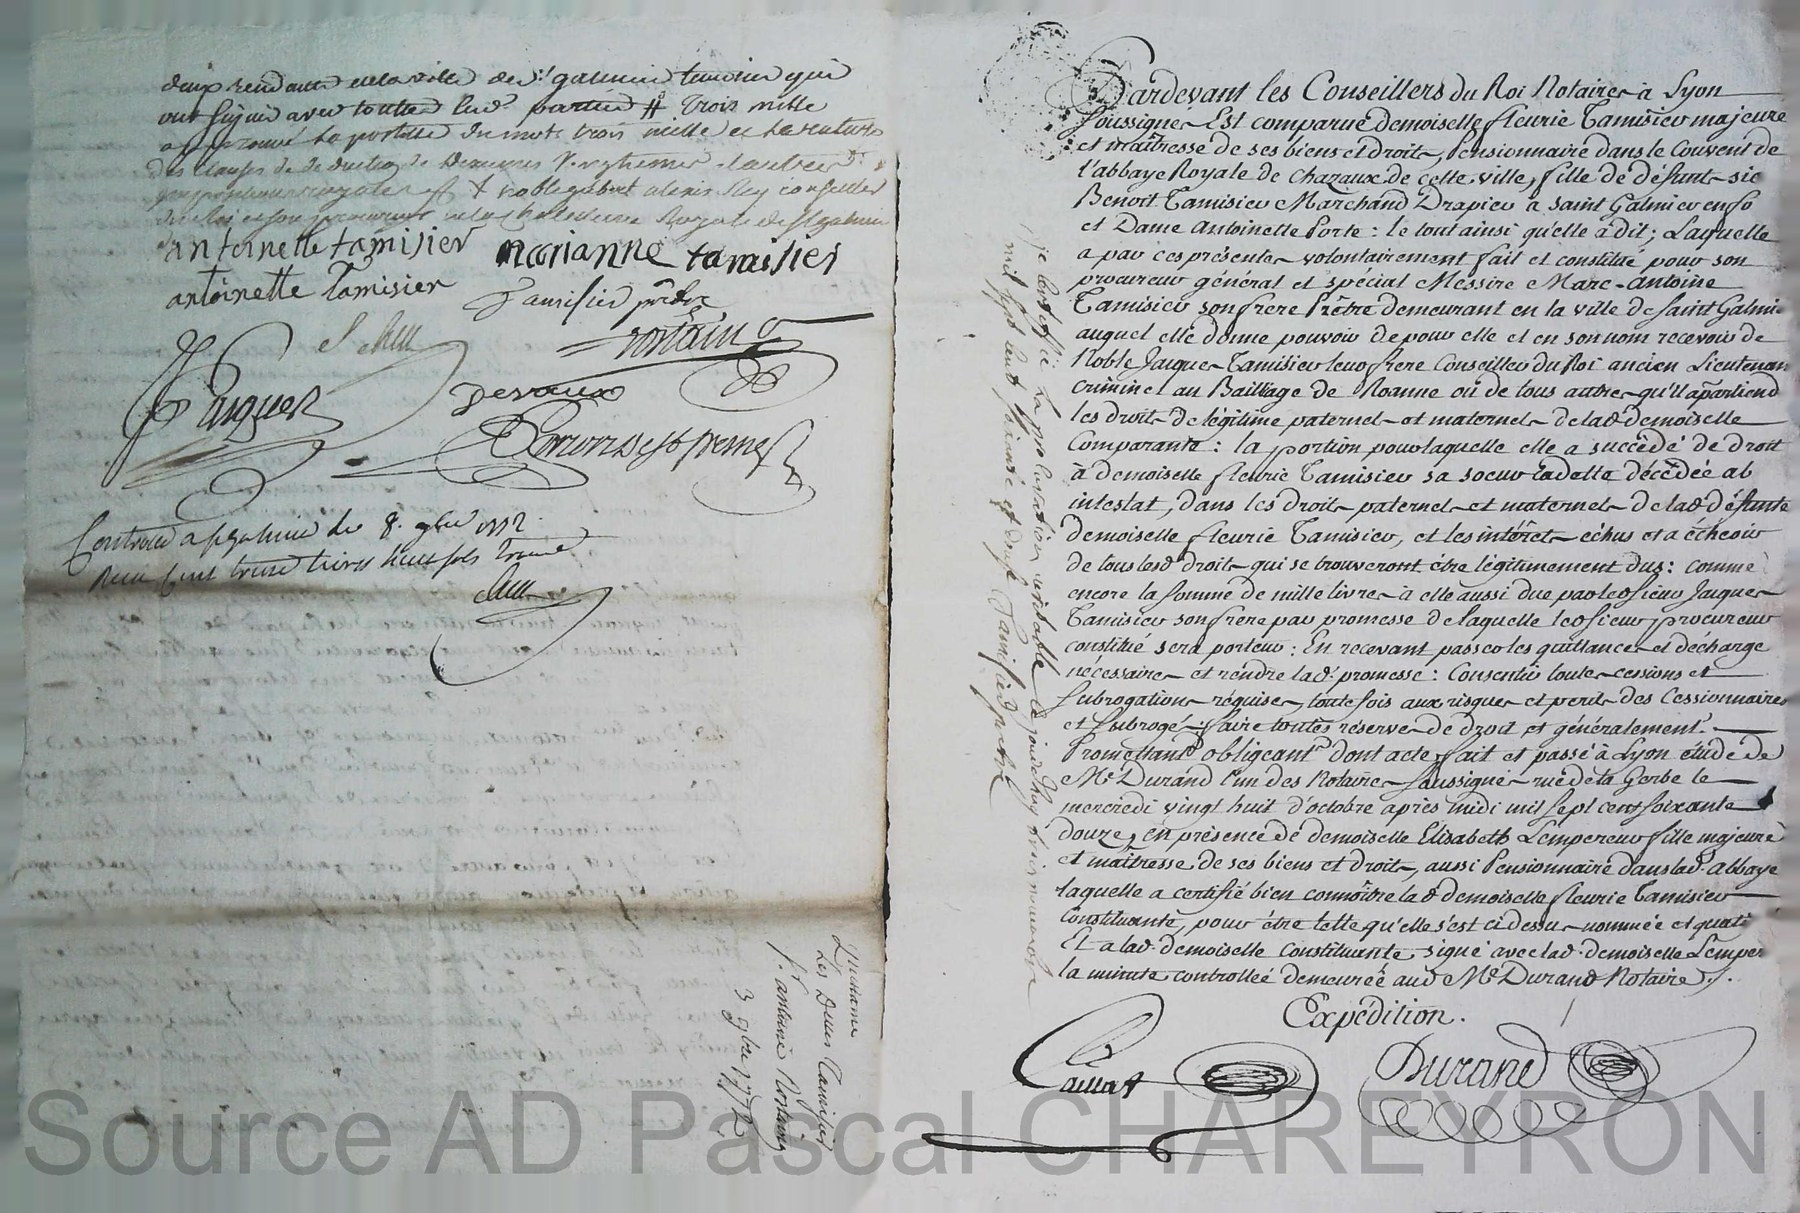 deux rendants de la ville de st galmier temoins qui
ont signé avec touttes lesd. parties # trois mille
approuvé la postille du mot trois mille et la rature
des clauses de
royale # + noble alexis Rey conseiller
du Roi et son procureur en la chatelenie Royale de st galmier
antoinette tamisier marianne tamisier
antoinette Tamisier Tamisier prêtre
rostaing
Paquet Desvaux
Controllé a st galmier le 8. 9bre 1772
Reçu cent treize livres sols
Quittance
Les Delles Tamisier
Sr. antoine Rostaing
3 9bre 1772
Pardevant les Conseillers du Roi Notaires à Lyon
Soussignés Est comparüe demoiselle fleurie Tamisier majeure
et maîtresse de ses biens et droits, Pensionnaire dans le Couvent de
l'abbaye Royale de Chazaux de cette ville, fille de défunts sie
Benoit Tamisier Marchand Drapier à Saint Galmier en fo
et Dame Antoinette Porte : le tout ainsi qu'elle a dit ; Laquelle
a par ces présentes volontairement fait et constitué pour son
procureur général et spécial Messire Marc-Antoine
Tamisier son frere Prêtre demeurant en la ville de Saint Galmie
auquel elle donne pouvoir de pour elle et en son nom recevoir de
Noble Jacques Tamisier leur frere Conseiller du Roi ancien Lieutenan
criminel au Bailliage de Roanne où de tous autres qu'il apartiend
les droits de légitime paternels et maternels de lad. demoiselle
Comparante : la portion pour laquelle elle a succédé de droit
à demoiselle fleurie Tamisier sa soeur cadette décédée ab
intestat, dans les droits paternels et maternels de lad. défunte
demoiselle fleurie Tamisier, et les intérêts échus et à écheoir
de tous lesd. droits qui se trouveront être légitimement dus : comme
encore la somme de mille livres à elle aussi due par led. sieur Jacques
Tamisier son frere par promesse de laquelle led. sieur procureur
constitué sera porteur : En recevant passer les quittances et décharges
nécessaires et rendre lad. promesse : Consentir toutes cessions et
subrogations réquises, toutefois aux risques et perils des Cessionnaires
et subrogés : faire toutes réserves de droit et généralement. —
Promettant obligeant dont acte fait et passé à Lyon étude de
Me. Durand l'un des Notaires Soussignés rue de la Gerbe le —
mercredi vingt huit d'octobre après midi mil sept cent soixante
douze, en présence de demoiselle Elisabeth Lempereur fille majeure
et maîtresse de ses biens et droits, aussi Pensionnaire dans lad. abbaye
laquelle a certifié bien connoître lad. demoiselle fleurie Tamisier
Constituante, pour être telle qu'elle s'est ci dessus nommée et quali
Et a lad. demoiselle constituante signé avec lad. demoiselle Lemper
la minute controllée demeurée aud. Me. Durand Notaire.
Expédition.
Caillat Durand
je certiffie la procuration véritable ce jourd'huy trois novembre
mil sept cent soixante et douze Tamisier prêtre
Source AD Pascal CHAREYRON